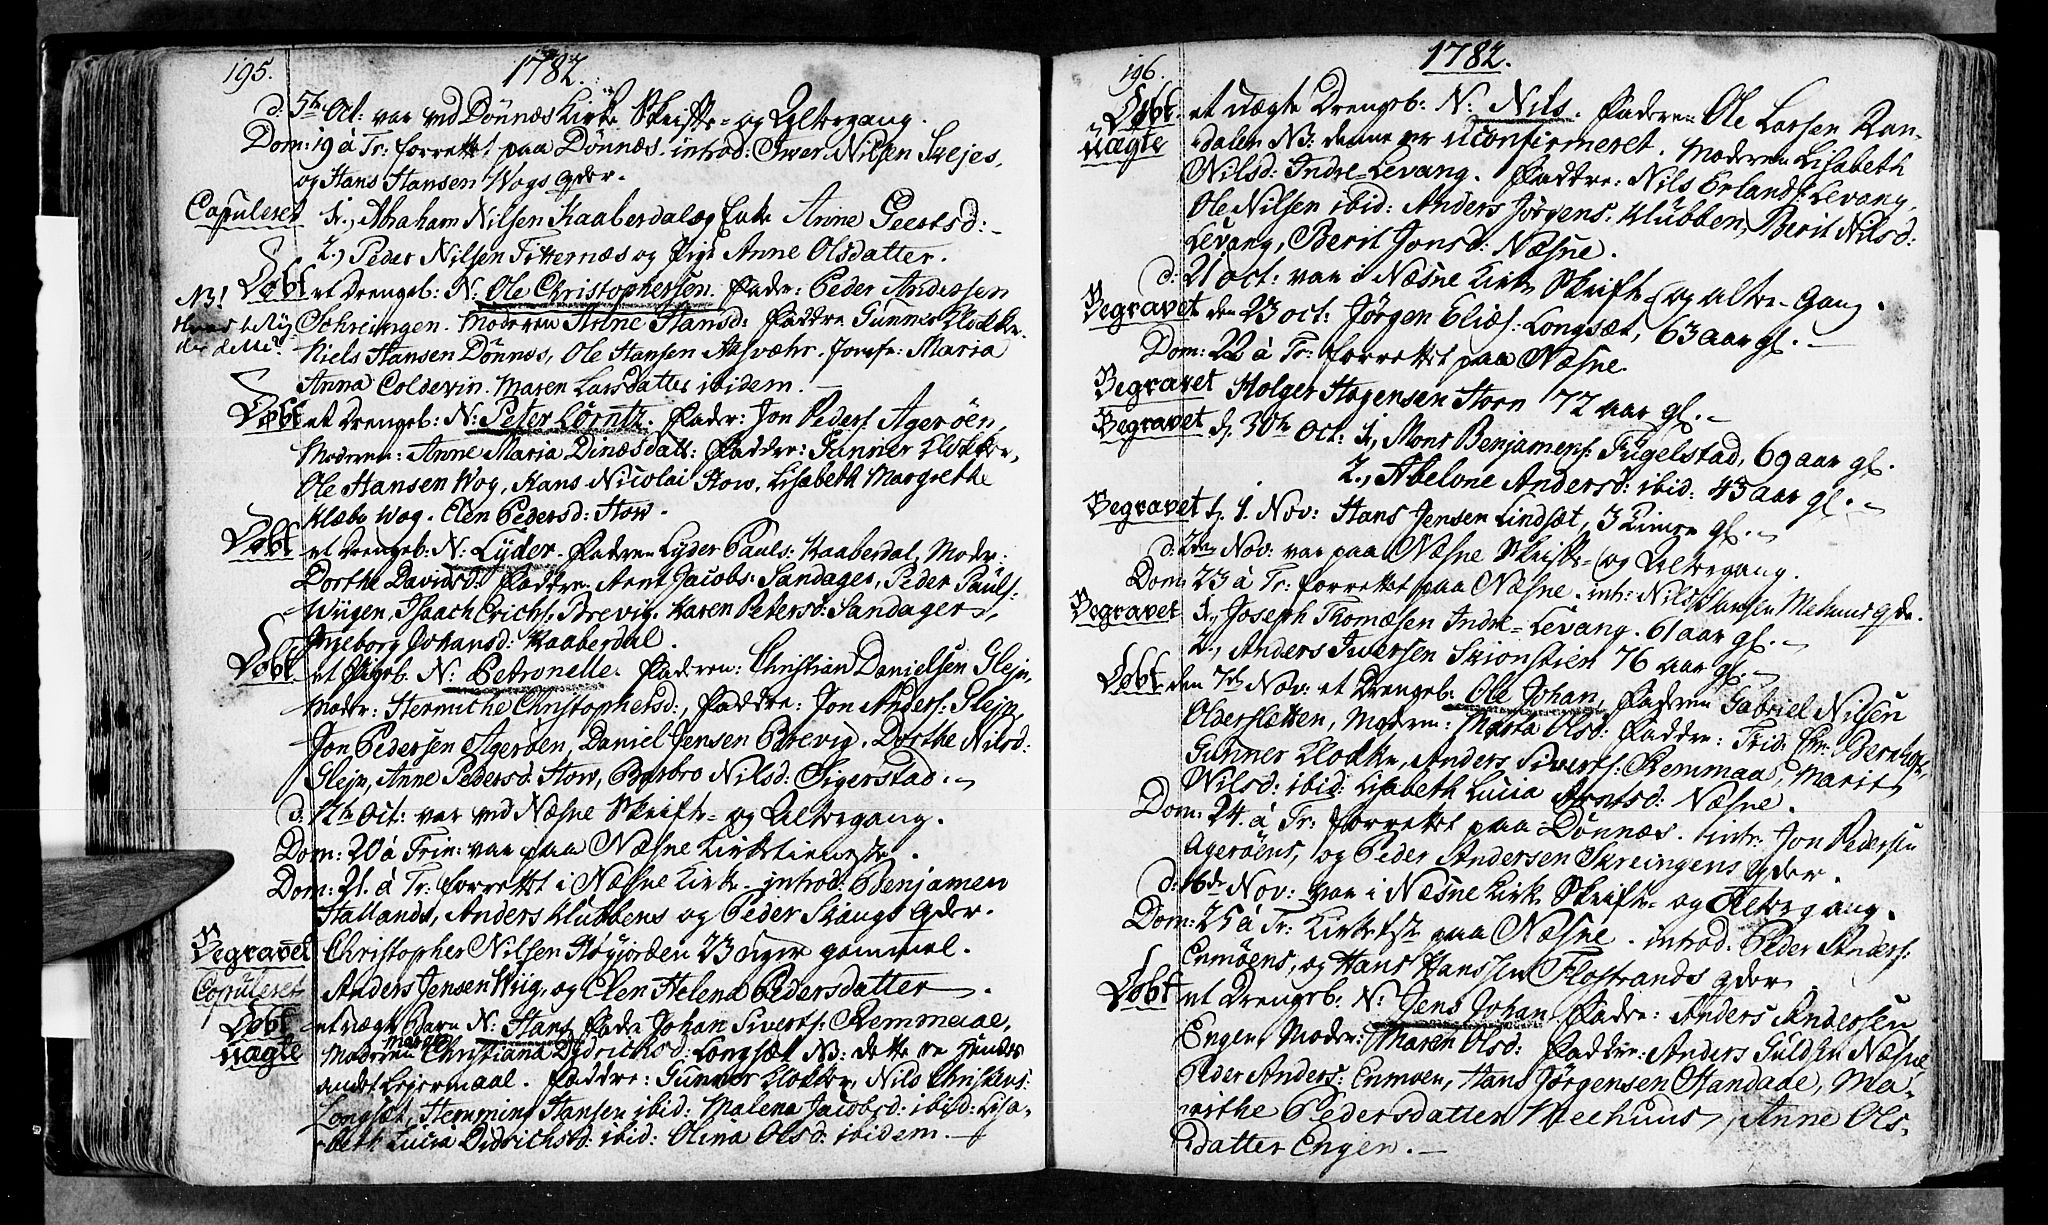 195. 1782.
d: 5te Oct: var ved Dönnæs Kirke Skrifte- og Altergang.
Dom: 19 à Tr: forrettet paa Dönnæs. introd: Iver Nilsen
og Hans Hansen Wogs qder.
Copuleret 1., Abraham Nilsen Kaaberdal og Enke Anne Geertsd:
2., Peder Nilsen og Pige Anne Olsdatter.
Döbt et Drengeb: N: Ole Christophersen. Fadr: Peder Andersen
NB! Skreingen. Moderen Anne Hansd: Faddre Gunner Klokker
Niels Hansen Dönnæs, Ole Hansen Aasværr. Jomfr: Maria
Anna Coldevin. Maren Larsdatter ibidem.
Döbt et Drengeb: N: Peter Lörntz. Fader: Jon Peders: Ageröen,
Moderen: Anne Maria Dinæsdatt: Faddre: Gunner Klokker,
Ole Hansen Wog, Hans Nicolai Stow, Lisabeth Margrethe
Klæbo Wog. Elen Pedersd: Stow.
Döbt et Drengeb: N: Lyder. Faderen Lyder Pauls: Kaaberdal, Moder:
Dorthe Davidsd: Faddre: Arnt Jacobs: Sandager, Peder Pauls:
Wiigen, Isaach Erichs: Brevig. Karen Petersd: Sandager,
Ingeborg Johansd: Kaaberdal.
Döbt et Pigeb. N: Petronelle. Faderen: Christian Danielsen Glejn,
Moder: Hermiche Christophersd:, Faddre: Jon Anders: Glejn,
Jon Pedersen Ageröen, Daniel Jensen Brevig. Dorthe Nilsd:
Glejn, Anne Pedersd: Stow, Barbro Nilsd: Sigerstad.
d. 12te Oct: var ved Næsne Skrifte- og Altergang.
Dom: 20 à Trin: var paa Næsne Kirketieneste.
Dom: 21. à Tr: forrettet i Næsne Kirke introd: Benjamen
Hallands, Anders Klubbens og Peder Skaugs qder.
Begravet Christopher Nilsen Höyjorden 23 Uger gammel.
Copuleret Anders Jensen Wiig, og Elen Helena Pedersdatter.
Döbt et uægte Barn N: Hans Fadr Johan Siverts: Remmaae,
uægte Moderen Maren Christiana Didrichsd: Longsæt NB: dette er hendes
andet Lejermaal. Faddre: Gunner Klokker, Nils Christens:
Longsæt, Hemming Hansen ibid: Malena Jacobsd: ibid: Lisa-
beth Lucia Didrichsd: ibid: Olina Olsd: ibidem.
196. 1782.
Döbt et uægte Drengeb: N: Nils. Faderen Ole Larsen Ran-
uægte dalen NB: denne er uconfirmeret. Moderen Lisabeth
Nilsd: Indre-Levang. Faddre: Nils Erlands: Levang,
Ole Nilsen ibid: Anders Jörgens. Klubben, Berit Nilsd:
Levang, Berit Jonsd: Næsne.
d: 21 Oct: var i Næsne Kirke Skrifte- og Alter-Gang.
Begravet den 23 Oct: Jörgen Elias: Longsæt, 63 aar gl.
Dom: 22 à Tr: forrettet paa Næsne
Begravet Holger Hagensen Horn 72 aar gl.
Begravet d. 30te Oct: 1., Mons Benjamens: Fugelstad, 69 aar gl.
2., Abelone Andersd: ibid: 43 aar gl.
Begravet d. 1. Nov: Hans Jensen Lindsæt, 3 Timer gl.
d: 2den Nov: var paa Næsne Skrifte- og Altergang.
Dom: 23 à Tr: forrettet paa Næsne. int: Nils Hansen Mehuus qder.
Begravet 1., Joseph Thomæsen Indre-Levang. 61 aar gl.
2., Anders Iversen Skionstien 76 aar gl.
Döbt den 7de Nov: et Drengeb: Ole Johan, Faderen Gabriel Nilsen
Oldersletten, Moderen: Marta Olsd: Faddre: Frid:
Gunner Klokker, Anders Siverts: Remmaa, Marit
Nilsd: ibid: Lisabeth Lucia Arntsd: Næsne.
Dom: 24. à Tr: forrettet paa Dönnæs. intr: Jon Pedersen
Ageröens, og Peder Andersen Skreingens qder.
d: 16de Nov: var i Næsne Kirke Skrifte- og Altergang.
Dom: 25 à Tr: Kirketst: paa Næsne. introd: Peder Anders:
Enmöens, og Hans Hanssen Flostrands qder
Döbt et Drengeb: N: Jens Johan Fadre: Anders Anderssen
Engen, Moder: Maren Olsd: Faddre: Anders Guldsen Næsne
Peder Anders: Enmoen, Hans Jörgensen Handaae, Ma-
rithe Pedersdatter Meehuus, Anne Ols-
datter Engen.